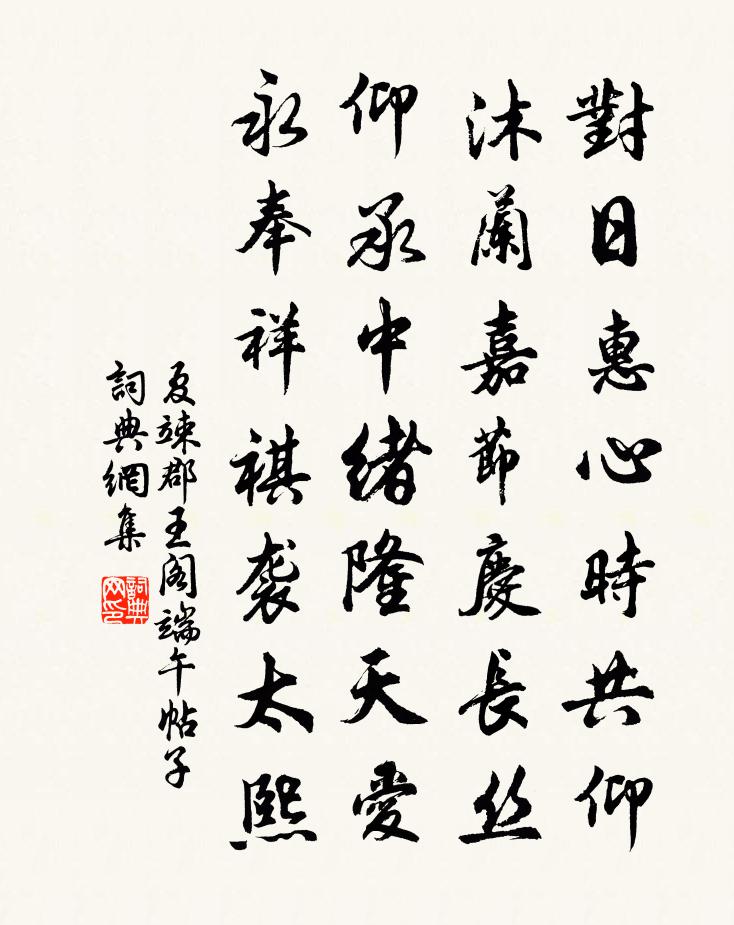 對日惠心時共仰
沐蘭嘉節慶長丝
仰承中緒隆天愛
永奉祥祺袭太熙
夏竦郡王阁端午帖子
詞典網集
詞典
网印